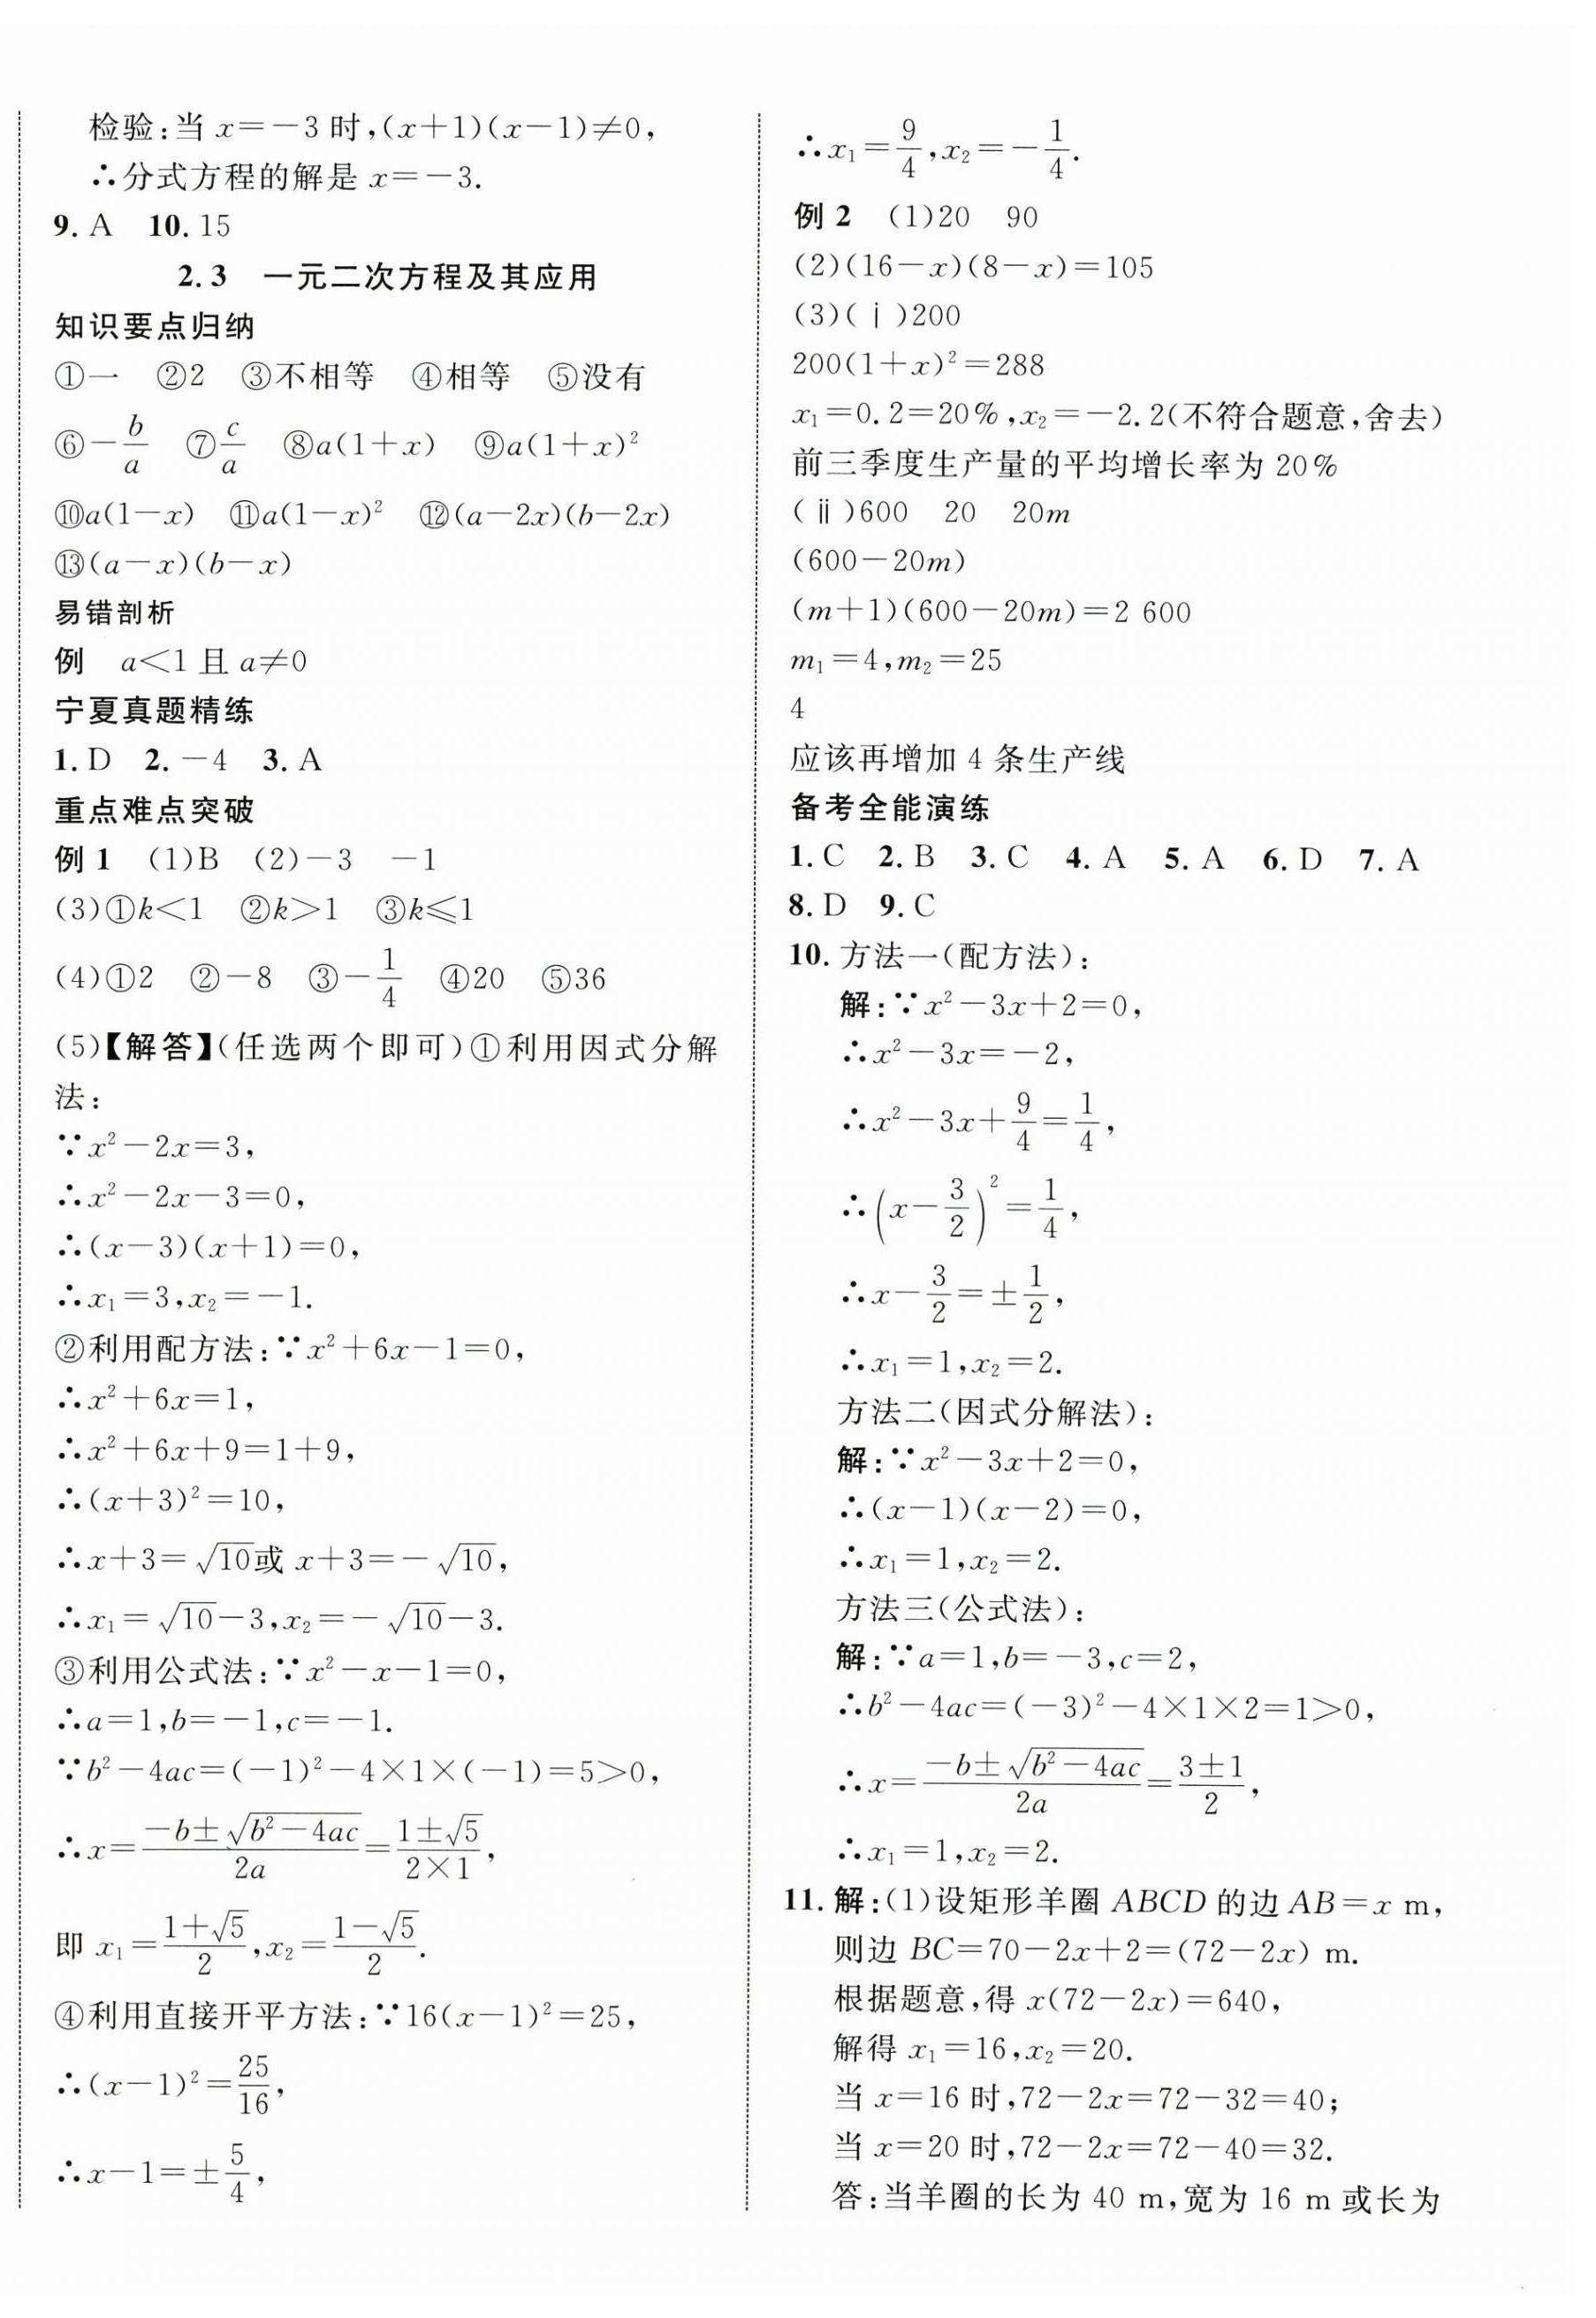 检验:当 x=-3 时,(x+1)(x-1)≠0,
∴分式方程的解是 x=-3.
9. A 10. 15
2.3 一元二次方程及其应用
知识要点归纳
①一 ②2 ③不相等 ④相等 ⑤没有
⑥-b/a ⑦c/a ⑧a(1+x) ⑨a(1+x)²
⑩a(1-x) ⑪a(1-x)² ⑫(a-2x)(b-2x)
⑬(a-x)(b-x)
易错剖析
例 a<1 且 a≠0
宁夏真题精练
1. D 2. -4 3. A
重点难点突破
例 1 (1)B (2)-3 -1
(3)①k<1 ②k>1 ③k≤1
(4)①2 ②-8 ③-1/4 ④20 ⑤36
(5)【解答】(任选两个即可)①利用因式分解
法:
∵x²-2x=3,
∴x²-2x-3=0,
∴(x-3)(x+1)=0,
∴x₁=3,x₂=-1.
②利用配方法:∵x²+6x-1=0,
∴x²+6x=1,
∴x²+6x+9=1+9,
∴(x+3)²=10,
∴x+3=√10或 x+3=-√10,
∴x₁=√10-3,x₂=-√10-3.
③利用公式法:∵x²-x-1=0,
∴a=1,b=-1,c=-1.
∵b²-4ac=(-1)²-4×1×(-1)=5>0,
∴x=(-b±√(b²-4ac))/(2a)=(1±√5)/(2×1),
即 x₁=(1+√5)/2,x₂=(1-√5)/2.
④利用直接开平方法:∵16(x-1)²=25,
∴(x-1)²=25/16,
∴x-1=±5/4,
∴x₁=9/4,x₂=-1/4.
例 2 (1)20 90
(2)(16-x)(8-x)=105
(3)(ⅰ)200
200(1+x)²=288
x₁=0.2=20%,x₂=-2.2(不符合题意,舍去)
前三季度生产量的平均增长率为 20%
(ⅱ)600 20 20m
(600-20m)
(m+1)(600-20m)=2 600
m₁=4,m₂=25
4
应该再增加 4 条生产线
备考全能演练
1. C 2. B 3. C 4. A 5. A 6. D 7. A
8. D 9. C
10. 方法一(配方法):
解:∵x²-3x+2=0,
∴x²-3x=-2,
∴x²-3x+9/4=1/4,
∴(x-3/2)²=1/4,
∴x-3/2=±1/2,
∴x₁=1,x₂=2.
方法二(因式分解法):
解:∵x²-3x+2=0,
∴(x-1)(x-2)=0,
∴x₁=1,x₂=2.
方法三(公式法):
解:∵a=1,b=-3,c=2,
∴b²-4ac=(-3)²-4×1×2=1>0,
∴x=(-b±√(b²-4ac))/(2a)=(3±1)/2,
∴x₁=1,x₂=2.
11. 解:(1)设矩形羊圈 ABCD 的边 AB=x m,
则边 BC=70-2x+2=(72-2x) m.
根据题意,得 x(72-2x)=640,
解得 x₁=16,x₂=20.
当 x=16 时,72-2x=72-32=40;
当 x=20 时,72-2x=72-40=32.
答:当羊圈的长为 40 m,宽为 16 m 或长为